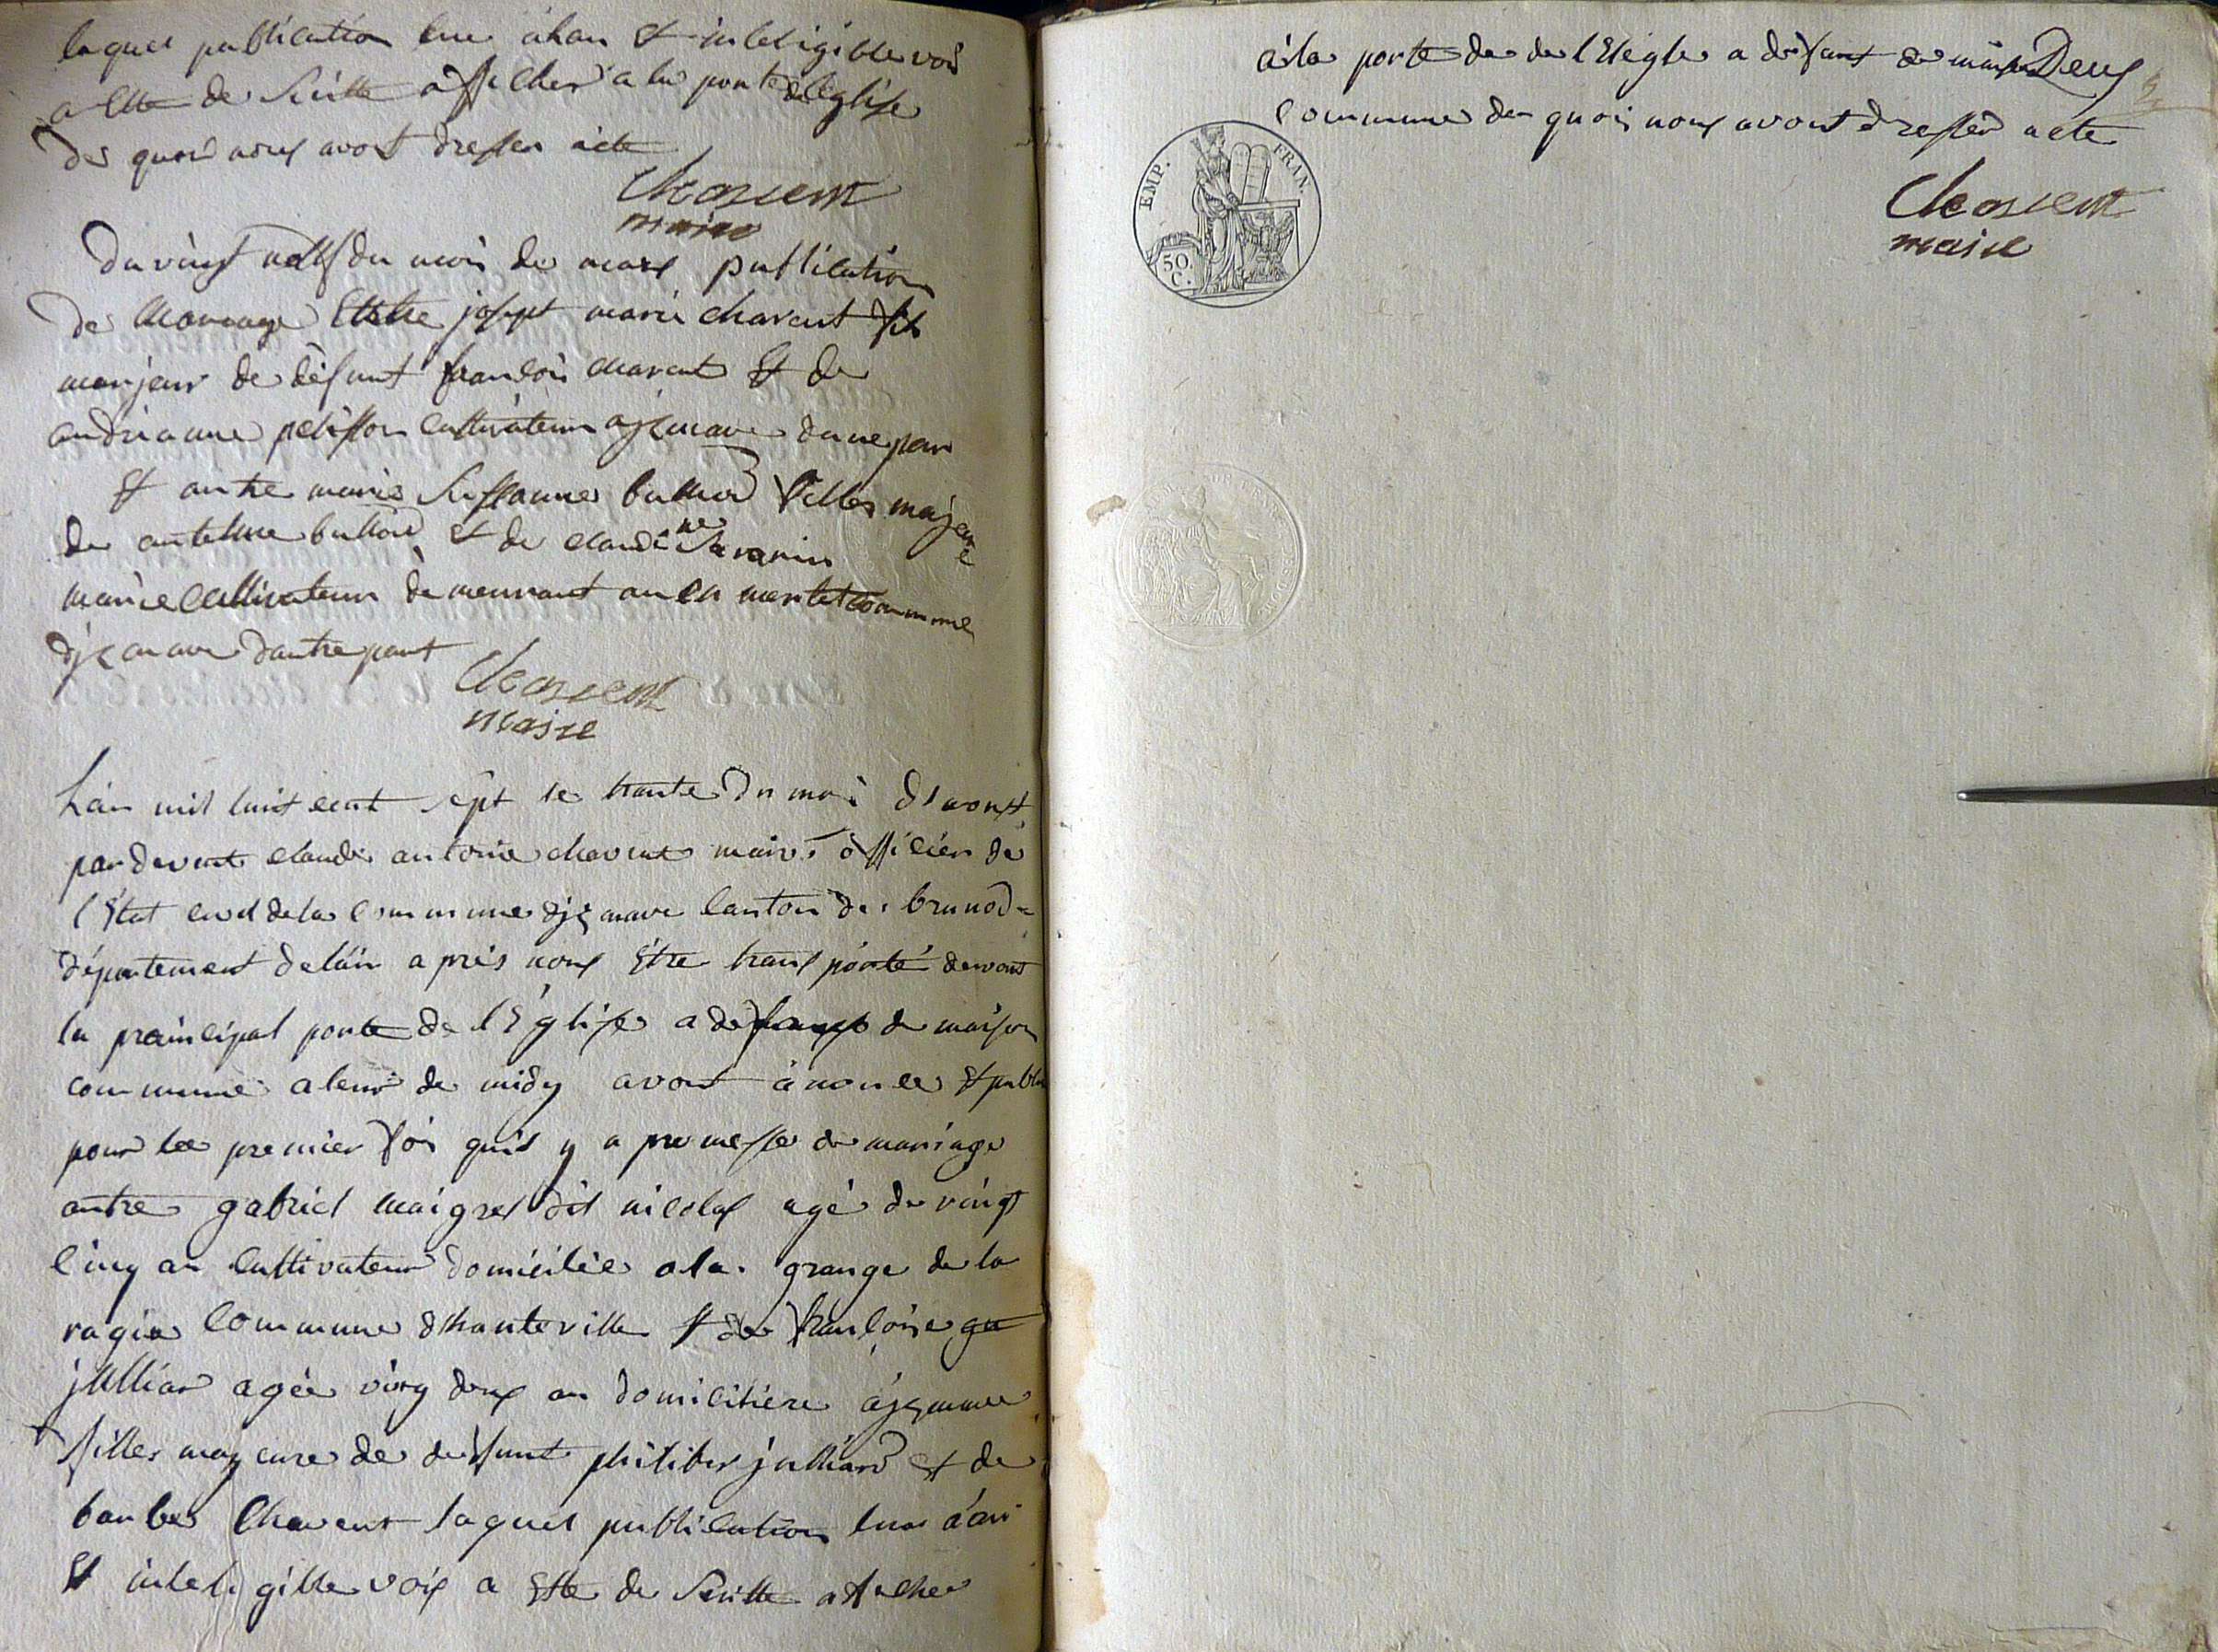 laquel publication lue ahau et inteligible voi
a este de suitte afficher a la porte de leglise
de quoi nous avont dresser acte
Chavent
maire
Du vingt neuf du mois de mars publication
de Mariage Entre josept marie chavent fils
marjeur de défunt françois chavent Et de
andrianne pelisson cultivateur djzenave dune par
Et autre marie Sussanne bullier filles majeure
de antelme bulliod Et de claudine Savarin
marie Cultivateur demeurant au en merlet commune
djzenave dautre part
Chavent
maire
Lan mil huit cent sept le trante du moi daoust
par devent claude antoine chavent maire officier de
lEtat civil de la commune djzenave canton de brunod=
département delain apres nous Etre transporté devant
la praincipal porte de lEglise a defaus de maison
commune a leur de midy avont anoncer Et publie
pour lee premier fois quil y a promesse de mariage
antre gabriel maigret dit nicolas agé de vingt
cinq an Cultivateur domicilée a la grange de la
ragia Commune dhauteville Et de françoise gu
julliar agée ving deux an domicilière djzenave
filles majeure de defunt philiber julliard et de
barbe Chavent laquel publication lue à au
Et inteligible voix a Este de Suitte atacher
à la porte de de lEleglse a defaut de maison Deux
commune de quoi nous avont dresser acte
EMP. FRAN.
50.
C.
Chavent
maire